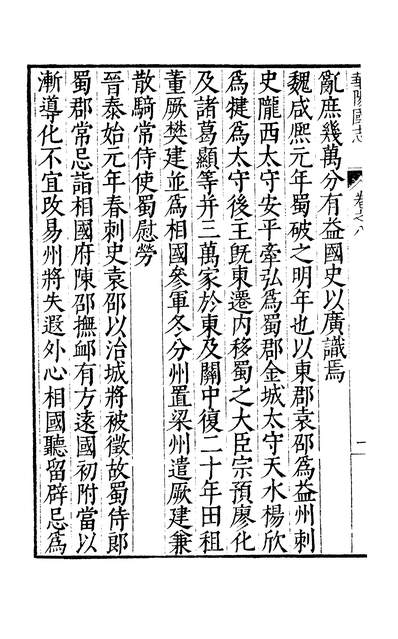 華陽國志
卷之八
一
亂庶幾萬分有益國史以廣識焉
魏咸熈元年蜀破之明年也以東郡袁邵爲益州刺
史隴西太守安平牽弘爲蜀郡金城太守天水楊欣
爲犍爲太守後王旣東遷内移蜀之大臣宗預廖化
及諸葛顯等并三萬家於東及關中復二十年田租
董厥樊建並爲相國參軍冬分州置梁州遣厥建兼
散騎常侍使蜀慰勞
晉泰始元年春刺史袁邵以治城將被徵故蜀侍郎
蜀郡常忌詣相國府陳邵撫䘏有方遠國初附當以
漸導化不宜改易州將失遐外心相國聽留辟忌爲